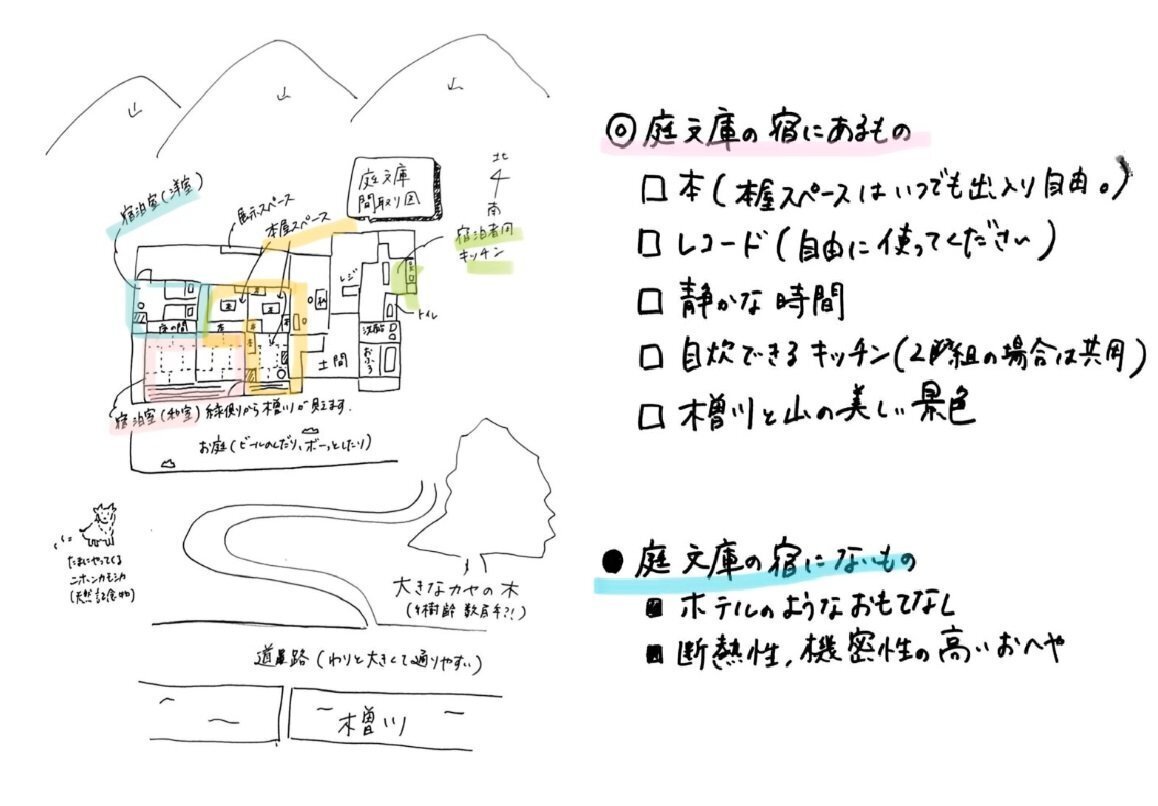 庭文庫
間取り図
北
南
宿泊室(洋室)
展示スペース
本屋スペース
宿泊者用
キッチン
レジ
トイレ
床の間
本
本
本
本
本
洗面
おふろ
土間
宿泊室(和室)縁側から木曽川が見えます.
お庭(ビールのんだり、ボーっとしたり)
たまにやってくる
ニホンカモシカ
(天然記念物)
大きなカヤの木
(樹齢 数百年?!)
道路(わりと大きくて通りやすい)
木曽川
◎庭文庫の宿にあるもの
□ 本(本屋スペースはいつでも出入り自由。)
□ レコード(自由に使ってください)
□ 静かな時間
□ 自炊できるキッチン(2組の場合は共同)
□ 木曽川と山の美しい景色
● 庭文庫の宿にないもの
■ ホテルのようなおもてなし
■ 断熱性,機密性の高いおへや